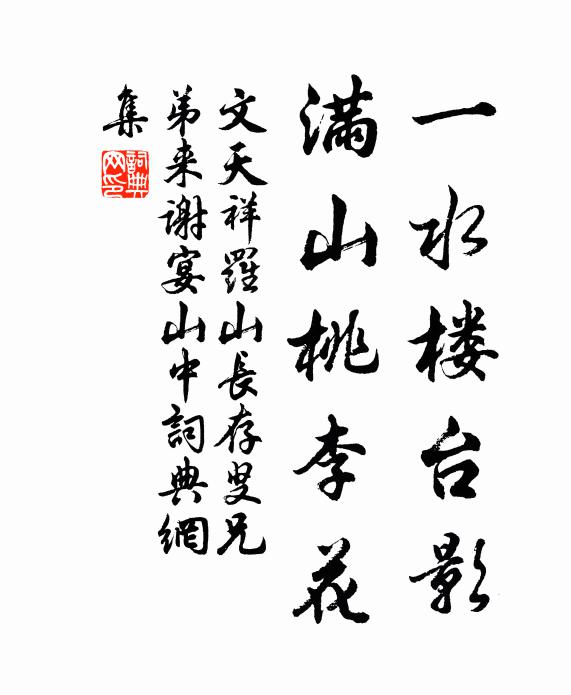 一水楼台影
满山桃李花
文天祥羅山長存叟兄
弟来谢宴山中詞典網
集
詞典网印